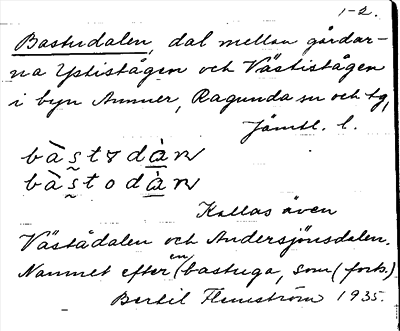 1-2.
Bastudalen, dal mellan gårdar-
na Ystistågen och Västistågen
i byn Ammer, Ragunda sn och tg,
Jämtl. l.
Kallas även
Västådalen och Andersjönsdalen.
Namnet efter (en) bastuga, som (forts.)
Bertil Flemström 1935.